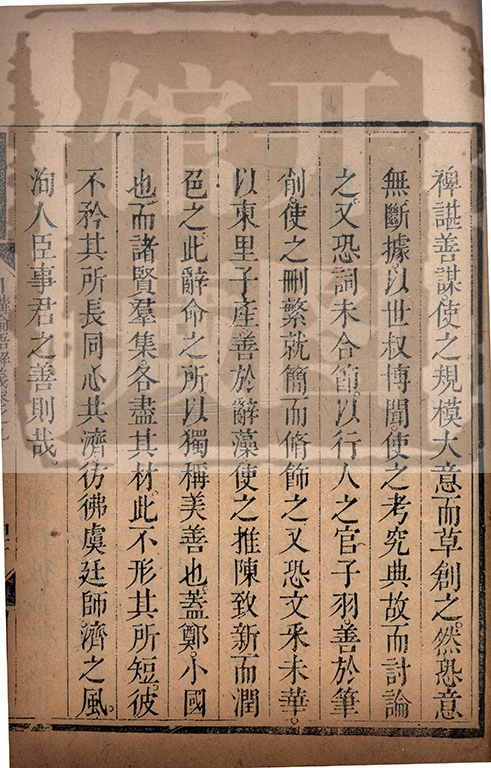 裨諶善謀。使之規模大意而草創之。然恐意
無斷據。以世叔博聞。使之考究典故而討論
之。又恐詞未合節。以行人之官子羽。善於筆
削。使之刪繁就簡而脩飾之。又恐文采未華。
以東里子產善於辭藻。使之推陳致新而潤
色之。此辭命之所以獨稱美善也。蓋鄭。小國
也。而諸賢羣集。各盡其材。此不形其所短。彼
不矜其所長。同心共濟。彷彿虞廷師濟之風。
洵人臣事君之善則哉。